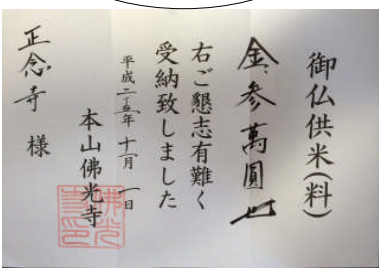 御仏供米(料)
金参萬圓也
右ご懇志有難く
受納致しました
平成二十五年 十一月 一日
本山佛光寺
正念寺 様